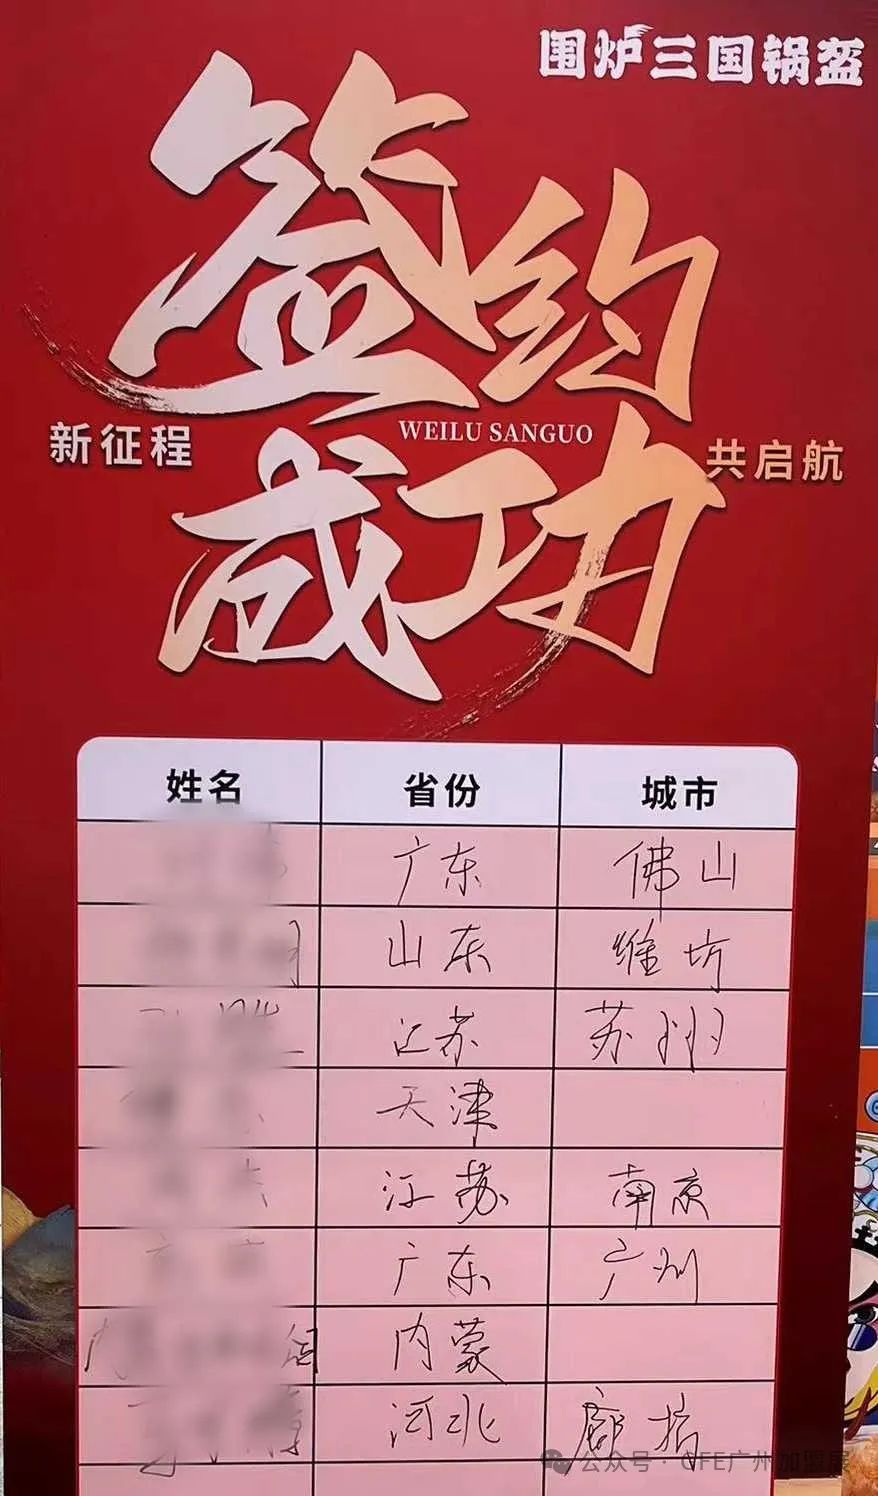 围炉三国锅盔
签约
WEILU SANGUO
新征程
共启航
成功
姓名 省份 城市
广东 佛山
山东 潍坊
江苏 苏州
天津
江苏 南京
广东 广州
内蒙
河北 廊坊
公众号·GFE广州加盟展